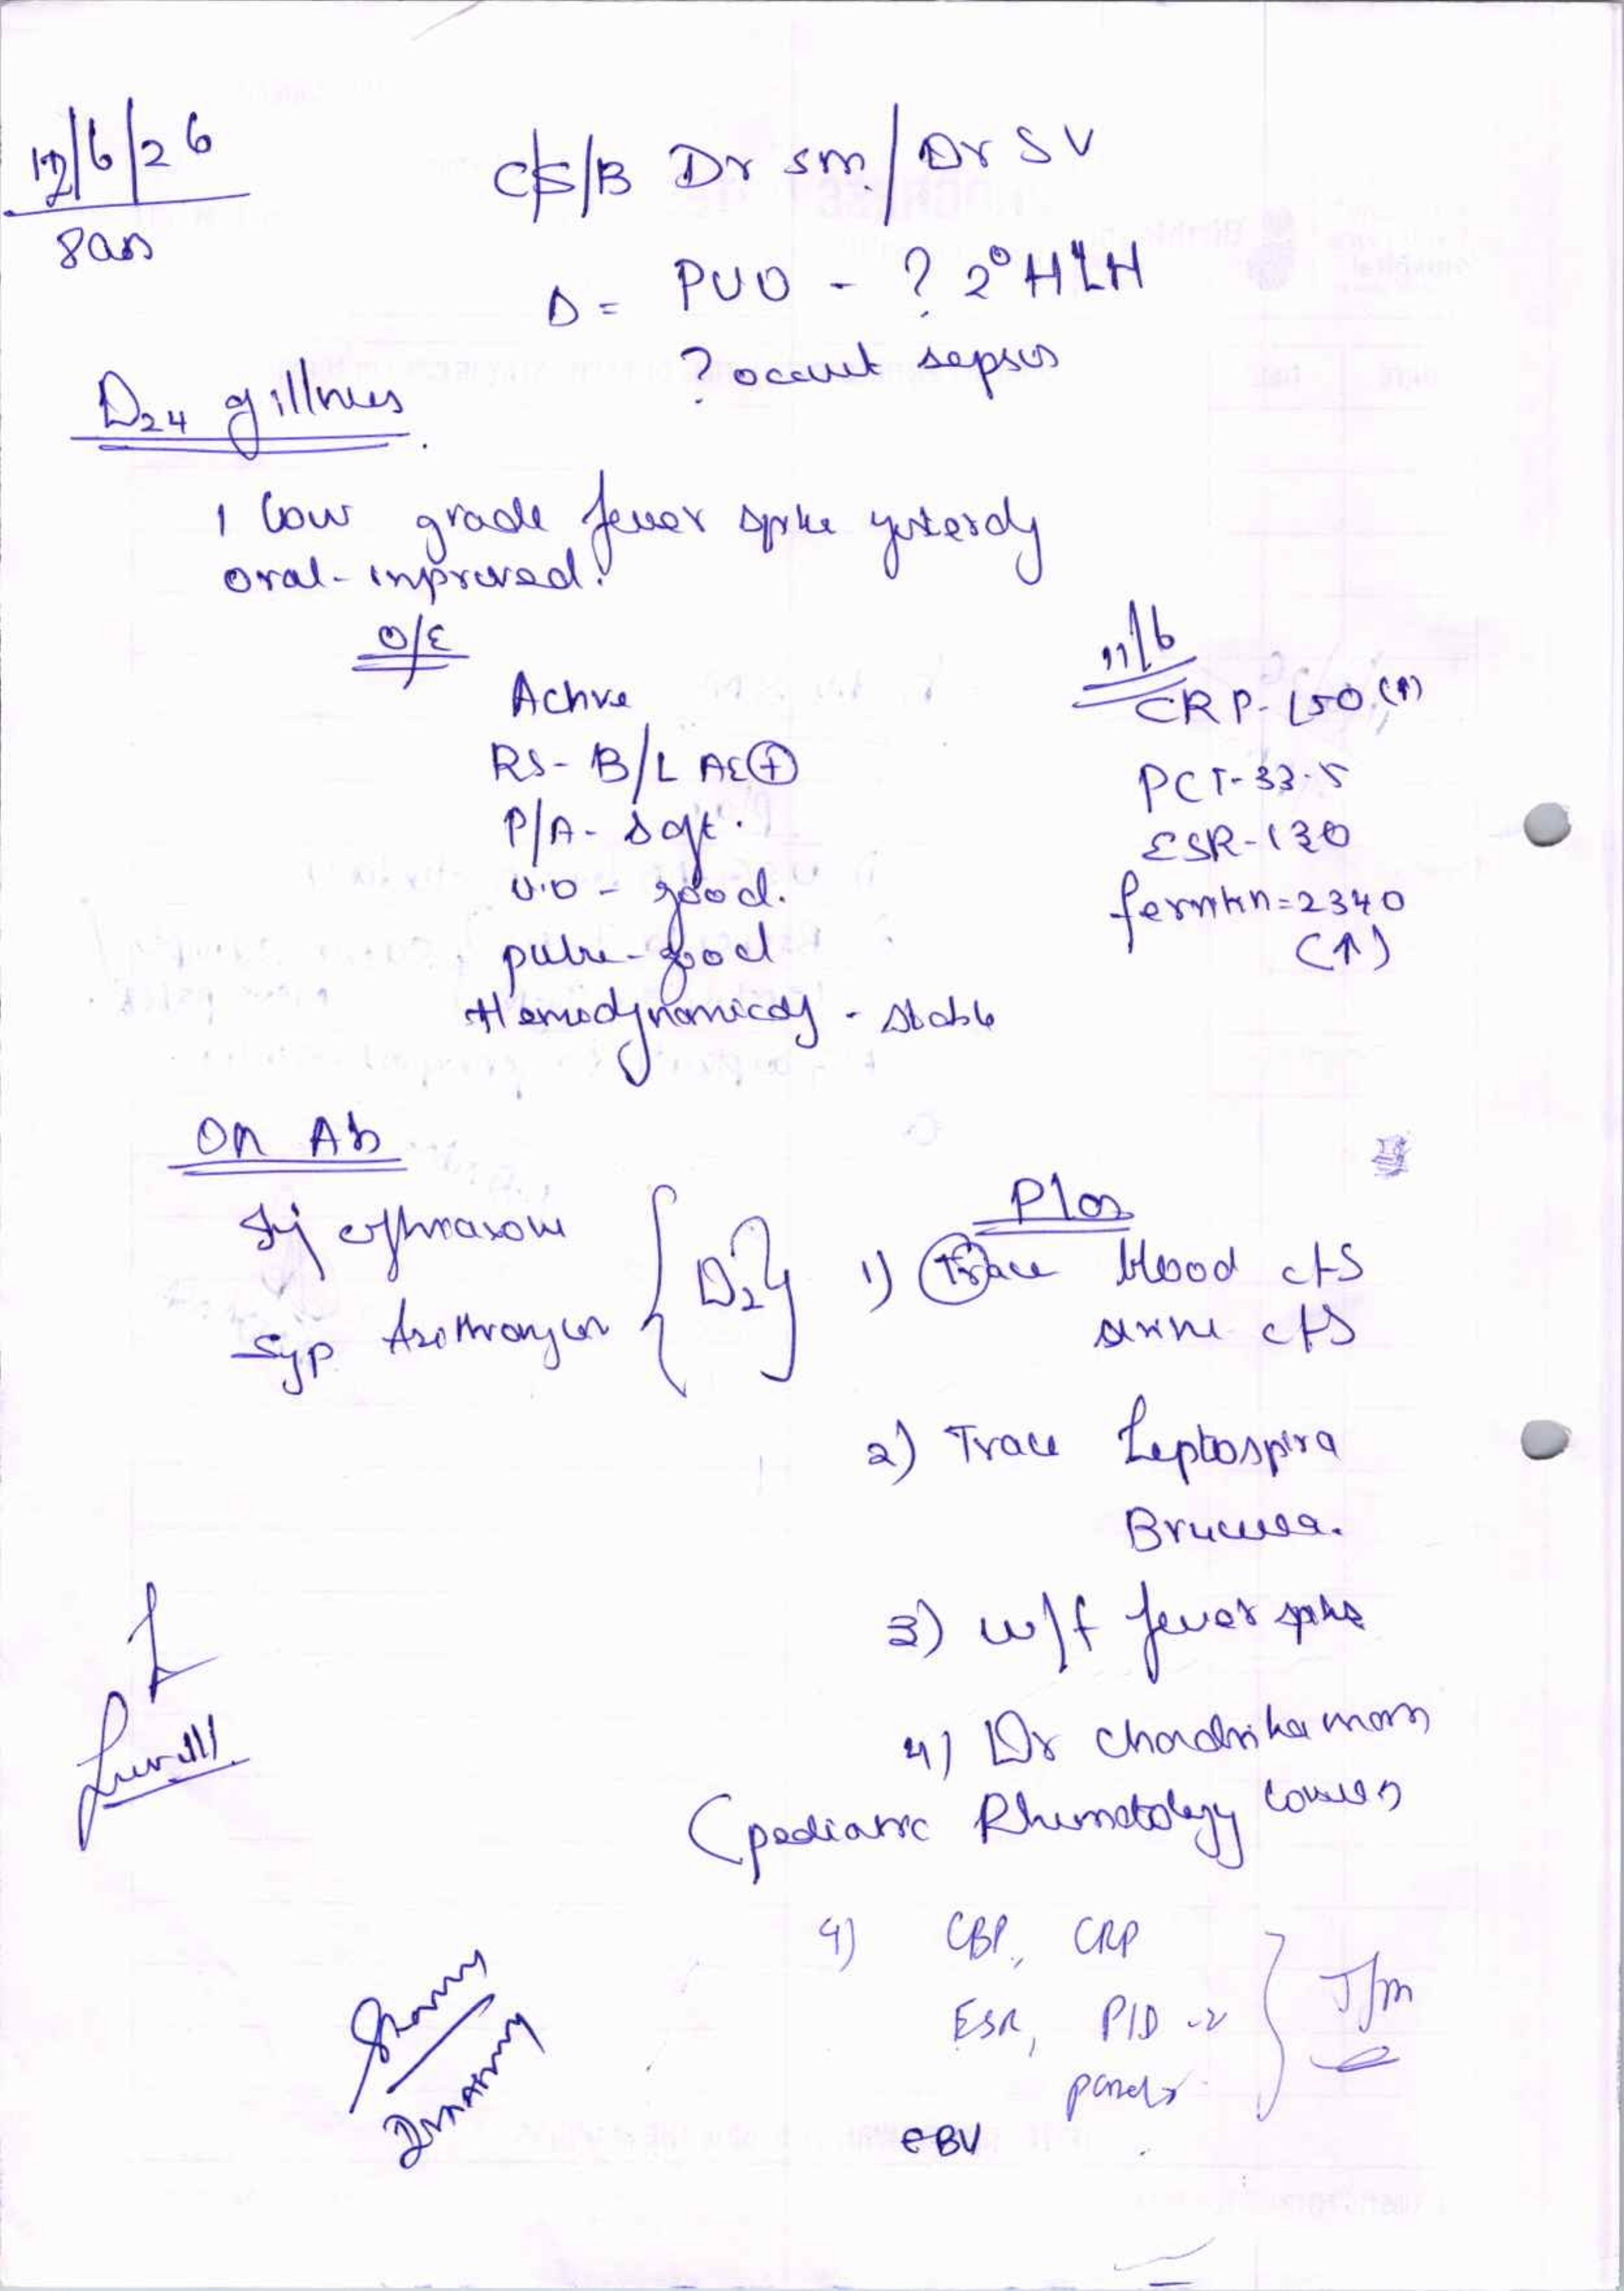 12/6/26
8am
C/S/B Dr Sm./Dr SV
D = PUO - ? 2° HLH
? occult sepsis
D24 of illness.
1 low grade fever spike yesterday
oral - improved.
O/E
Active
RS - B/L AE (+)
P/A - soft.
U.O - good.
pulse - good
Hemodynamically - stable
11/6
CRP - 150 (↑)
PCT - 33.5
ESR - 130
ferritin = 2340
(↑)
On Ab
Inj ceftriaxone
Syp Azithromycin
{D2}
Plan
1) Trace blood c/s
urine c/s
2) Trace Leptospira
Brucella.
3) w/f fever spike
4) Dr Chandrika mam
(pediatric Rhumatology
4) CBP, CRP
ESR, PID
panel
T/m
EBV